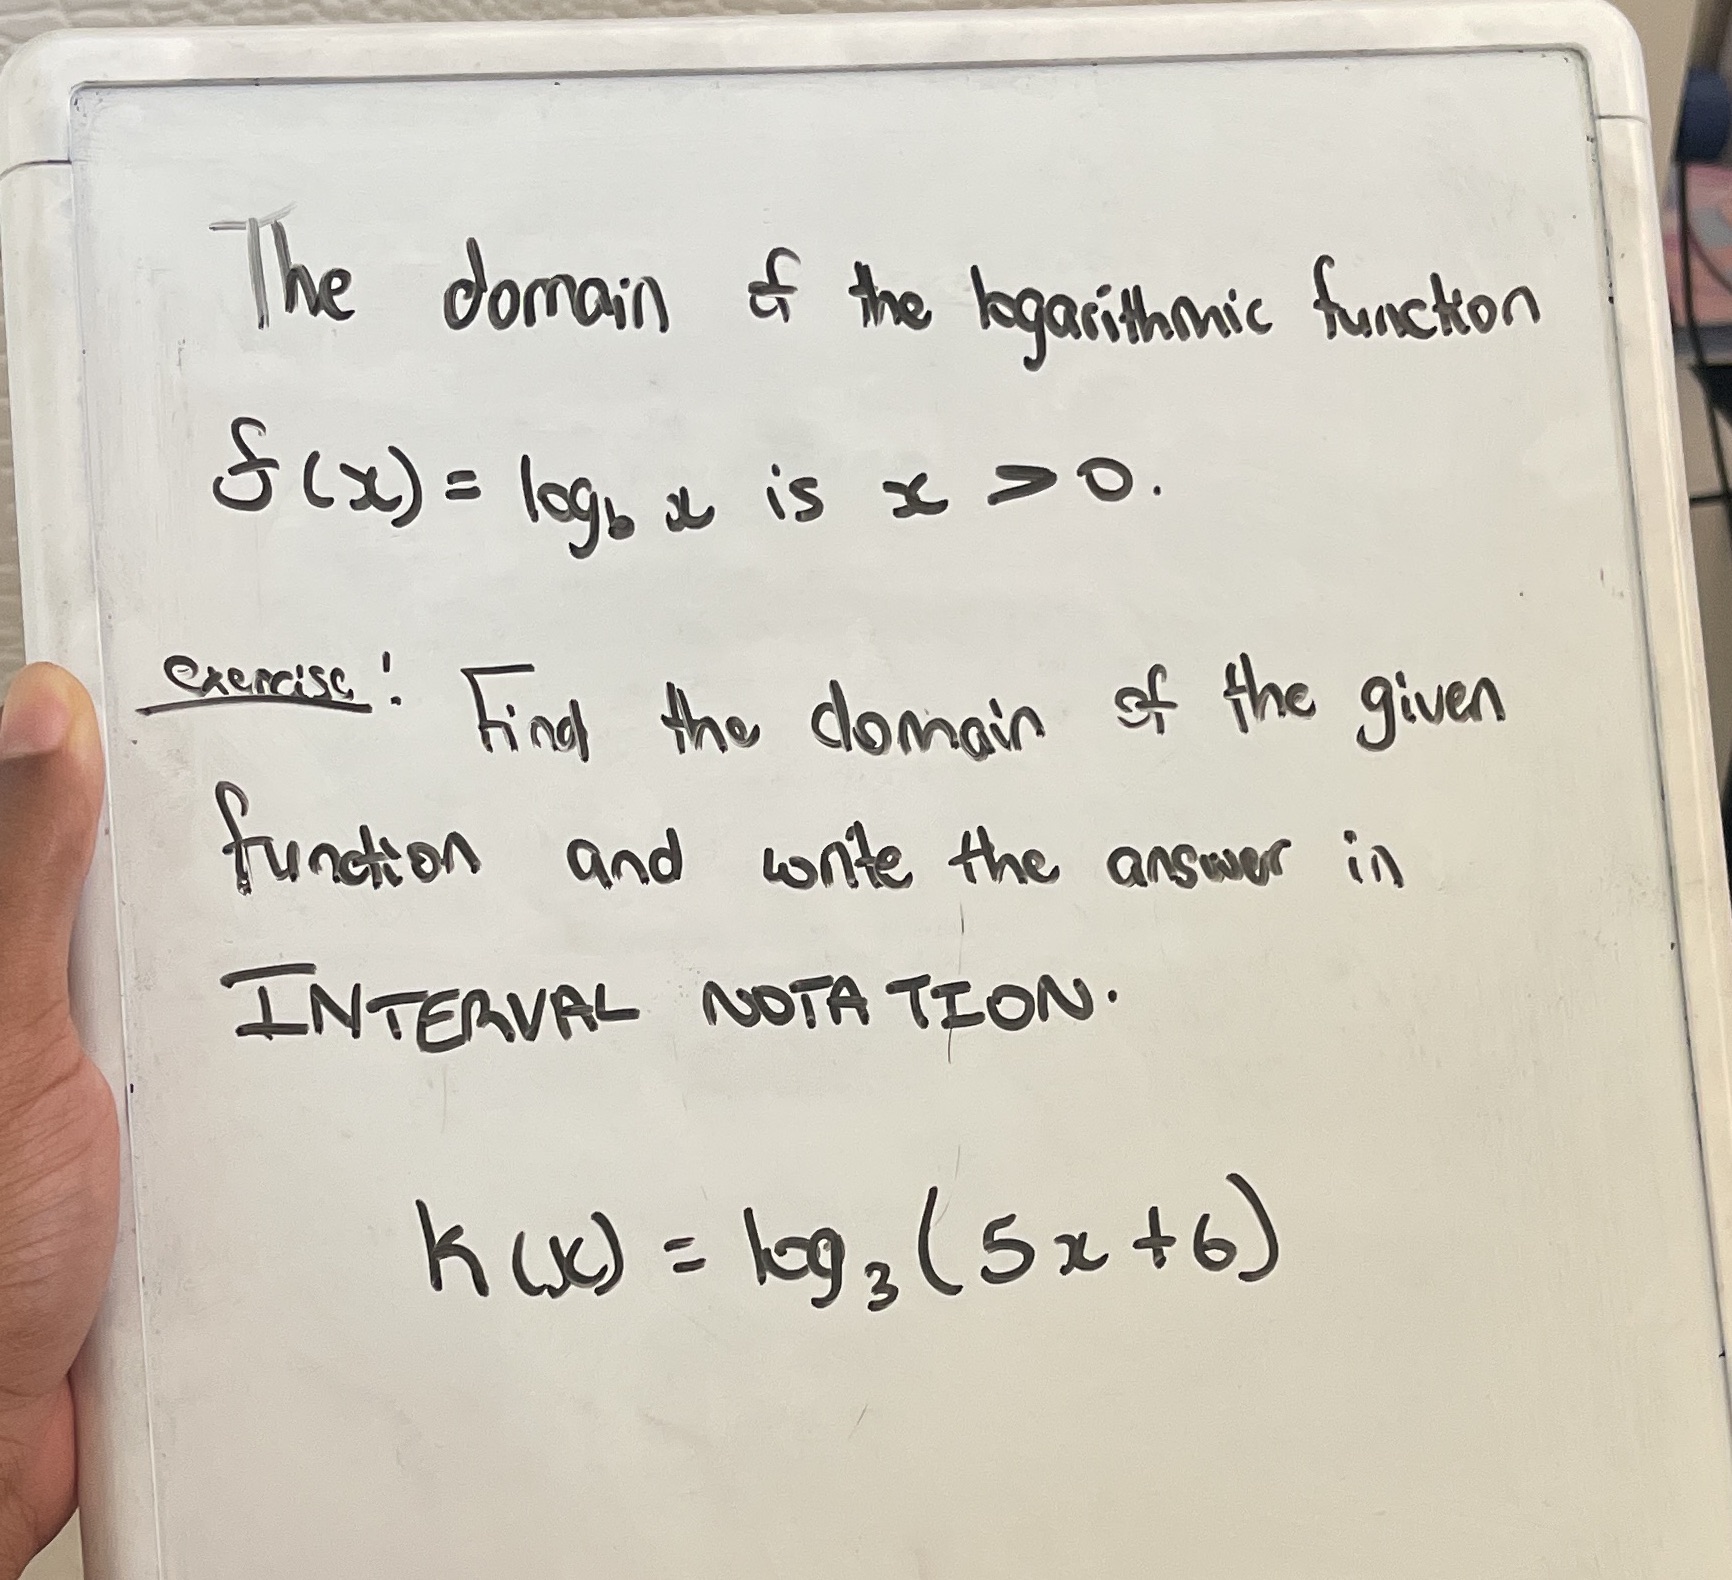 The domain of the logarithmic function
f(x) = log_b x is x > 0.
exercise: Find the domain of the given
function and write the answer in
INTERVAL NOTATION.
k(x) = log_3 (5x+6)